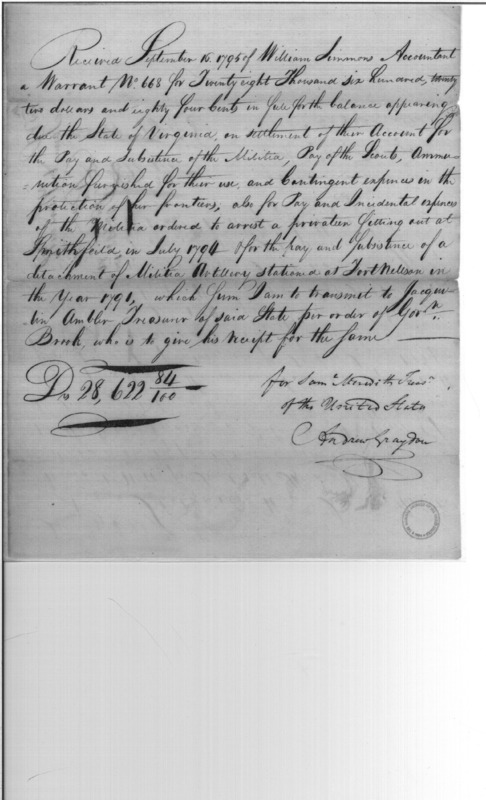 Received September 15. 1795 of William Simmons Accountant
a Warrant No. 668 for Twenty eight Thousand six hundred, twenty
two dollars and eighty four Cents in full for the balance appearing
due the State of Virginia, on settlement of their Account for
the Pay and Subsistence of the Militia, Pay of the Scouts, Ammu-
-nition furnished for their use, and Contingent expences in the
protection of her frontiers, also for Pay and Incidental expences
of the Militia ordered to arrest a privateer fitting out at
Smithfield, in July 1794 & for the pay and Subsistence of a
detachment of Militia Artillery stationed at Fort Nelson in
the Year 1794, which Sum I am to transmit to Jacque-
lin Ambler Treasurer of said State per order of Govrn.
Brook, who is to give his receipt for the same
Ds 28,622 84/100
for Saml. Meredith Treasr.
of the United States
Andrew Graydon